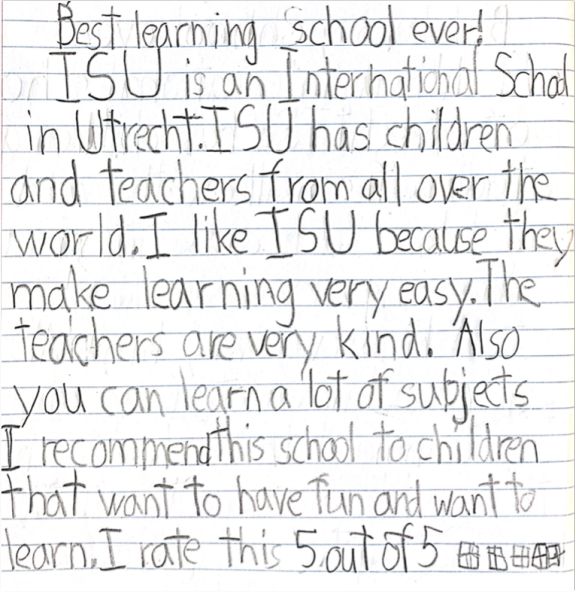 Best learning school ever!
ISU is an International School
in Utrecht. ISU has children
and teachers from all over the
world. I like ISU because they
make learning very easy. The
teachers are very kind. Also
you can learn a lot of subjects
I recommend this school to children
that want to have fun and want to
learn. I rate this 5 out of 5